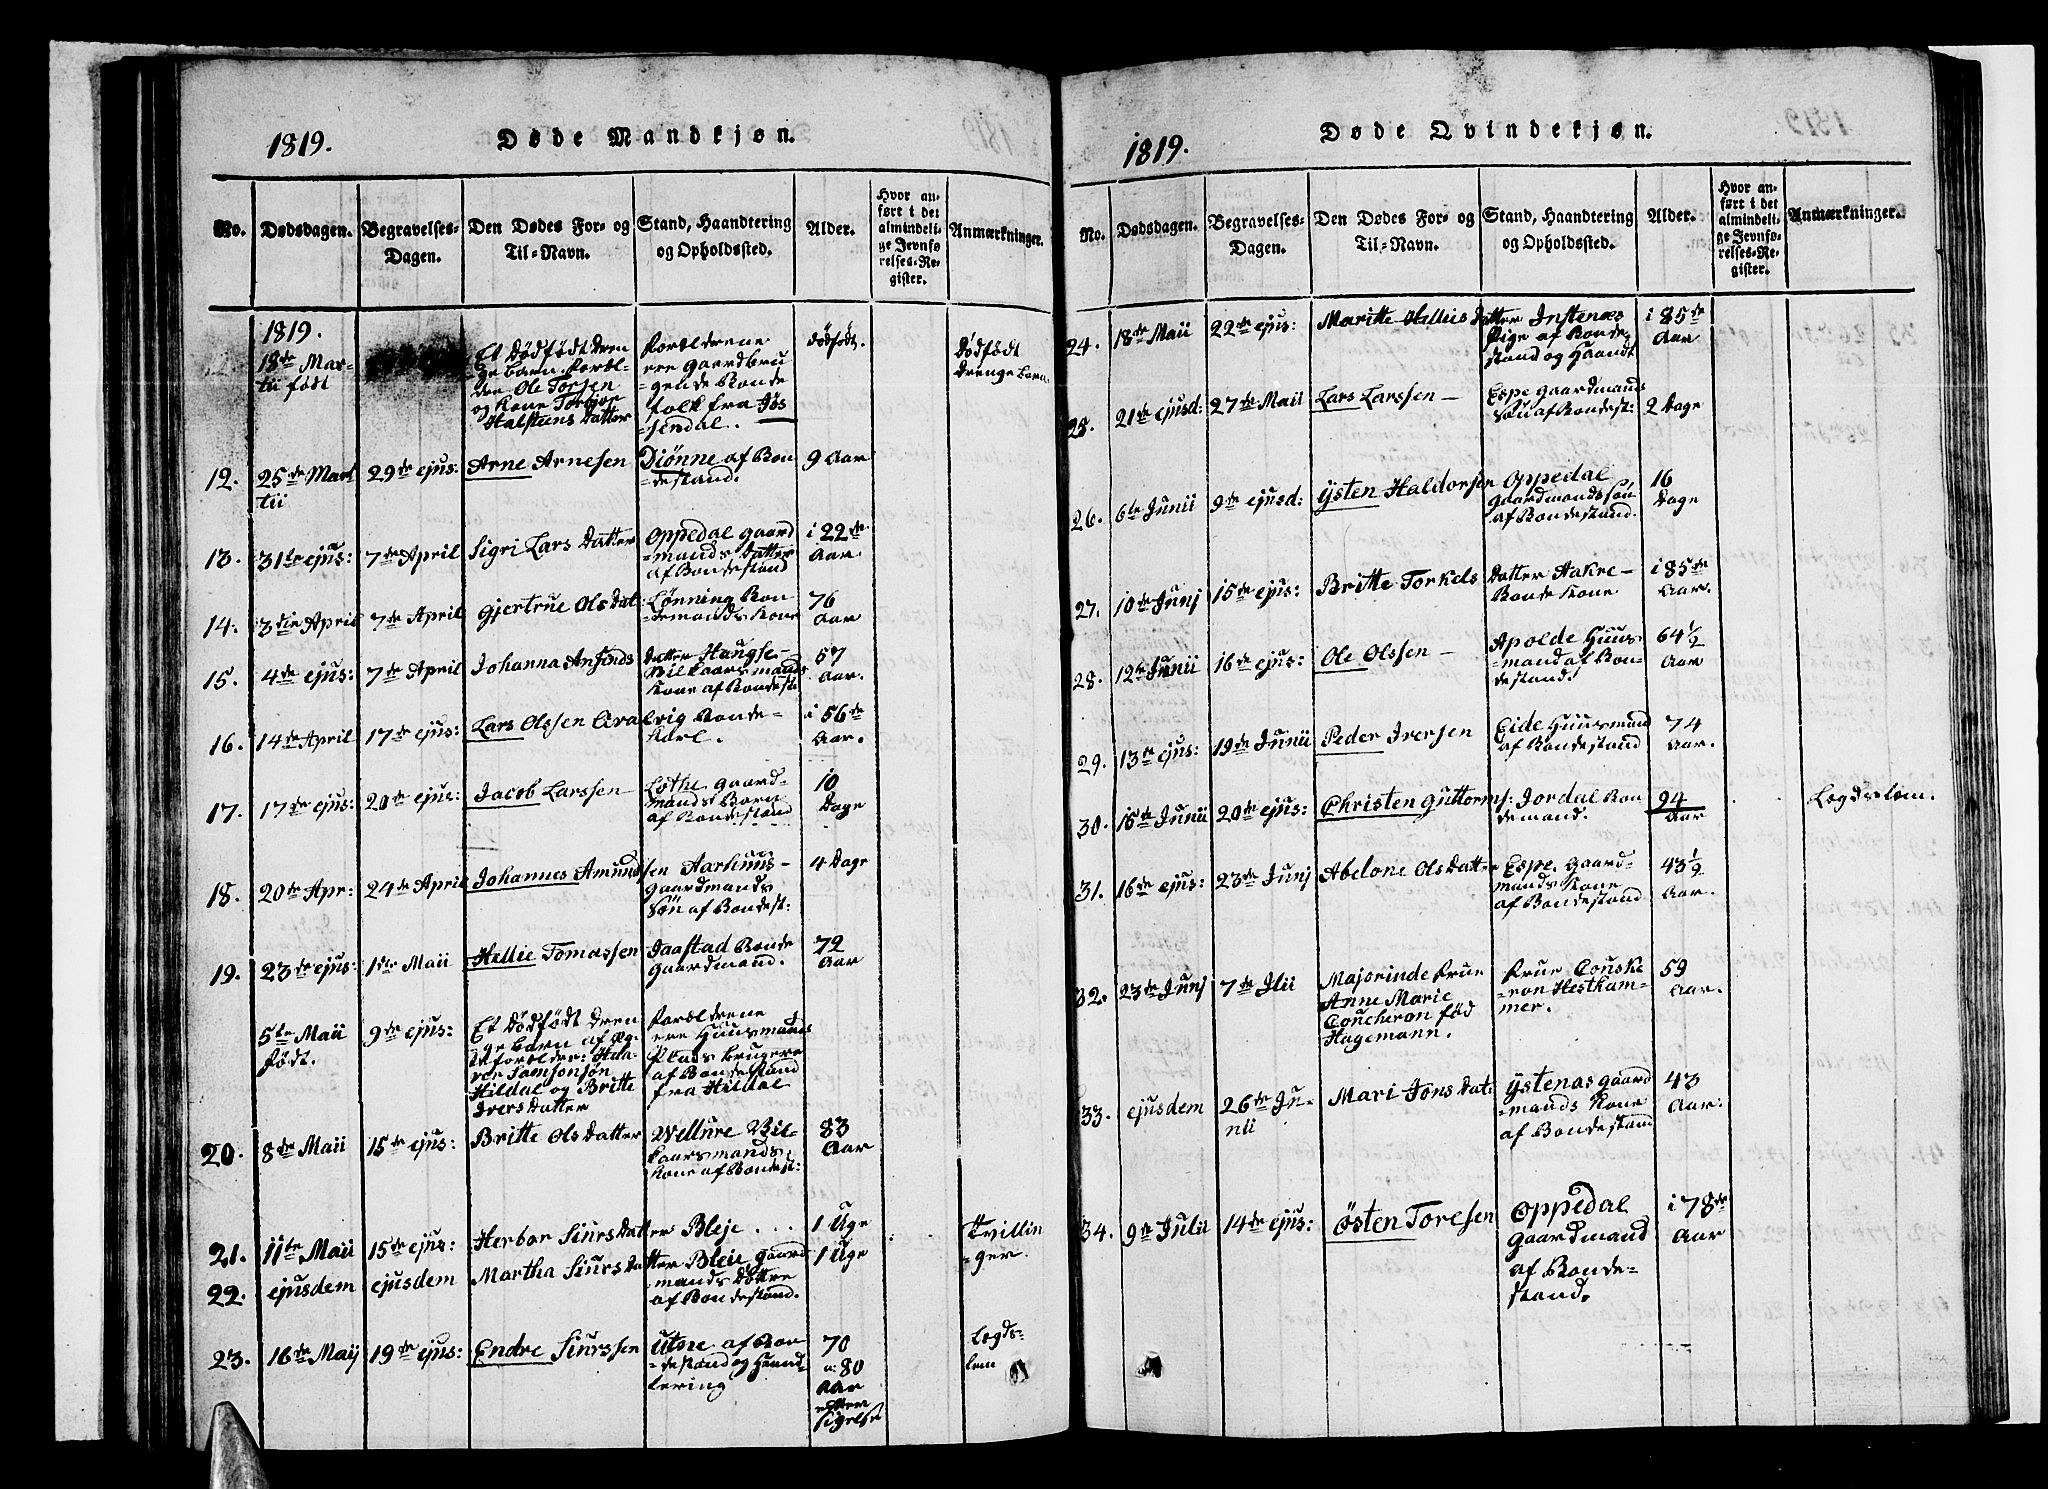 1819.
Døde Mandkjøn.
No.
Dødsdagen.
Begravelses-
Dagen.
Den Dødes For- og
Til-Navn.
Stand, Haandtering
og Opholdssted.
Alder.
Hvor an-
ført i det
almindeli-
ge Jevnfø-
relses-Re-
gister.
Anmærkninger.
1819.
18de Mar-
tii født
Et Dödfödt Dren
ge barn. Foræl-
dre Ole Torsen
og Kone Torbjor
Halsteens Datter
Forældrene
ere Gaardbru
gende Bonde
folk fra Jös
sendal.
Dödfödt.
Dödfödt
Drenge barn
12.
25de Mar
tii
29de ejus:
Arne Arnesen
Diönne af Bon
destand.
9 Aar
13.
31te ejus:
7de April
Sigri Lars Datter
Oppedal Gaard
mands Datter
af Bondestand
i 22de
Aar.
14.
3die April
7de April
Gjertrue Ols Dat:
Lönning Bon
demands Kone
76
Aar
15.
4de ejus:
7de April
Johanna Anfinds
Datter Haugse-
Vilkaarsmands
Kone af Bondest:
57
Aar.
16.
14de April
17de ejus:
Lars Olssen Qva
lvig Bonde-
Karl.
i 56de
Aar.
17.
17de ejus:
20de ejus:
Jacob Larssen
Lothe Gaard-
mands Barn
af Bondestand
10
Dage
18.
20de Apr:
24de April
Johannes Amund
sen Aarhuus-
Gaardmands
Sön af Bondest:
4 Dage
19.
23de ejus:
1ste Maii
Hellie Tomassen
Jaastad Bonde
Gaardmand.
72
Aar
5te Maii
födt.
9de ejus:
Et Dödfödt Dren
ge barn af Æg-
teforældre: Hal-
vor Samsonsön
Hildal og Britte
Ivers Datter
Forældrene
ere Huusmands
Plads brugere
af Bondestand
fra Hildal
20.
8de Maii
15de ejus:
Britte Ols Datter
Vellure Vil-
kaarsmands
Kone af Bondest:
83
Aar
21.
11te Maii
15de ejus:
Herbor Siurs Dat
ter Bleje . . .
1 Uge
Tvillin
ger.
22.
ejusdem
ejusdem
Martha Siurs Da
tter Bleie Gaard
mands Döttre
af Bondestand.
1 Uge
23.
16de Maij
19de ejus:
Endre Siurssen
Utne af Bon
destand og Haand
tering
70
a: 80
Aar
efter
Sigelse
Lægds-
lem
1819.
Døde Qvindekjøn.
No.
Dødsdagen.
Begravelses-
Dagen.
Den Dødes For- og
Til-Navn.
Stand, Haandtering
og Opholdssted.
Alder.
Hvor an-
ført i det
almindeli-
ge Jevnfø-
relses-Re-
gister.
Anmærkninger.
24.
18de Maii
22de ejus:
Maritte Hellies
Datter Instenæs
Pige af Bonde
stand og Haandt
i 85de
Aar
25.
21de ejusd:
27de Maii
Lars Larssen
Espe Gaardmands
Sön af Bondest:
2 Dage
26.
6te Junii
9de ejusd:
Ysten Haldorsen
Oppedal
Gaardmands Sön
af Bondestand.
16
Dage
27.
10de Junj
15de ejus:
Britte Torkels
Datter Aakre-
Bonde Kone
i 85de
Aar.
28.
12te Junii
16de ejus:
Ole Olssen
Apolde Huus
mand af Bon-
destand.
64 1/2
Aar
29.
13de ejus:
19de Junii
Peder Iversen
Eide Huusmand
af Bondestand
74
Aar.
30.
15de Junii
20de ejus:
Christen Guttorms:
Jordal Bon
demand.
94
Aar
Lægdslem.
31.
16de ejus:
23de Junj
Abelone Ols Datter
Espe Gaard-
mands Kone
af Bondestand
43 1/2
Aar.
32.
23de Junj
7de Jlii
Majorinde Frue
Anne Marie
Coucheron föd
Hagemann.
Frue Couske
ron Hestham-
mer.
59
Aar.
33.
ejusdem
26de Ju-
nii
Mari Jons Dat:
Ystenas Gaard
mands Kone
af Bondestand
43
Aar.
34.
9de Julii
14de ejus:
Östen Toresen
Oppedal
Gaardmand
af Bonde-
stand.
i 78de
Aar